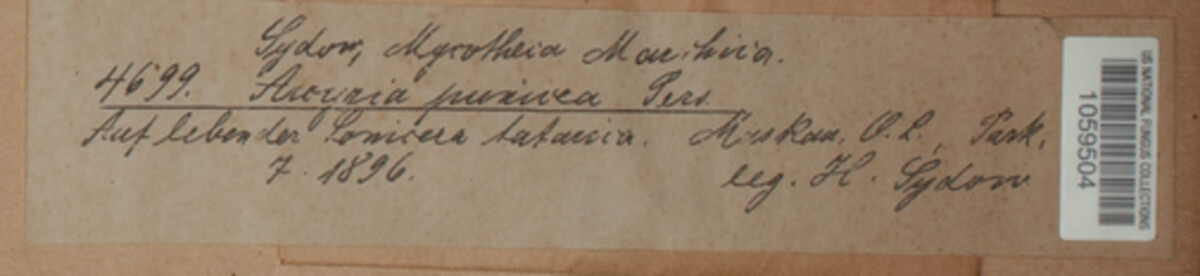 Sydow, Mycotheca Marchica.
4699. Arcyria punicea Pers.
Auf lebender Lonicera tatarica. Muskau, O. L., Park.
7. 1896. leg. H. Sydow
US NATIONAL FUNGUS COLLECTIONS
1059504